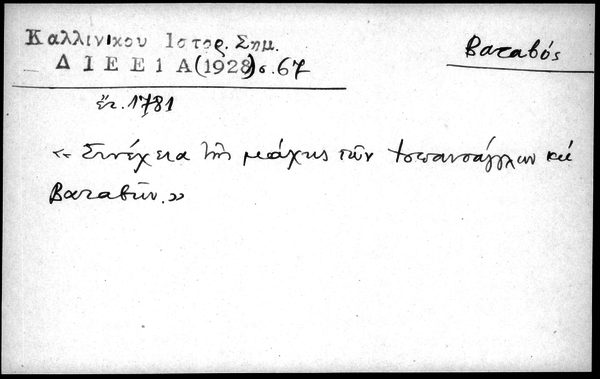 Καλλινικου Ιστορ. Σημ.
Βαταβός
ΔΙΕΕ 1 Α (1928) σ. 67
ἔτ. 1781
« Συνέχεια τῆς μάχης τῶν καὶ
Βαταβῶν. »